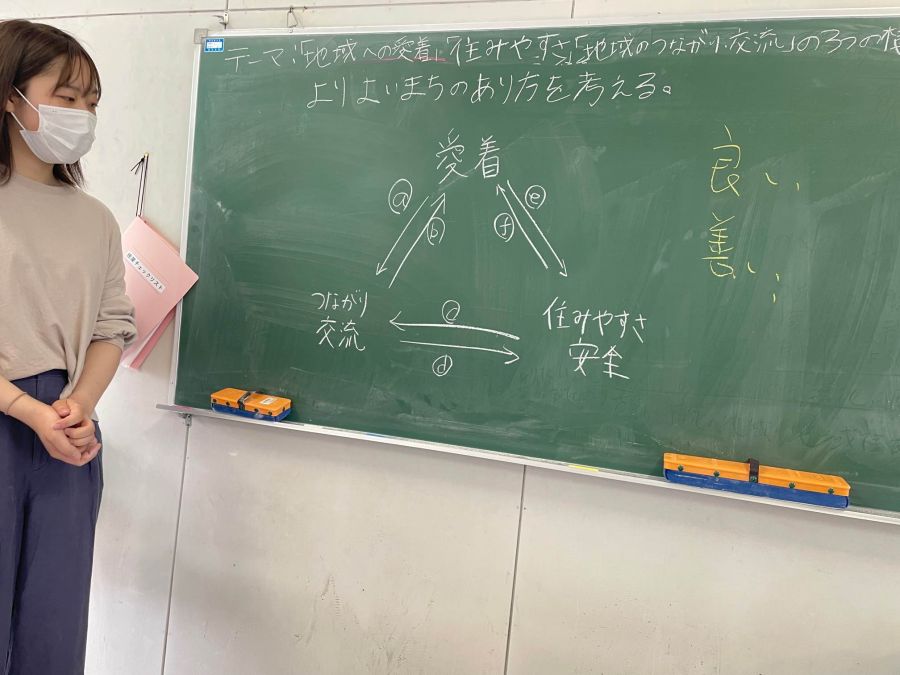 テーマ:「地域への愛着」「住みやすさ」「地域のつながり・交流」の3つの
よりよいまちのあり方を考える。
愛着
ⓐ
ⓑ
ⓔ
ⓕ
つながり
交流
ⓒ
ⓓ
住みやすさ
安全
良い
善い
授業チェックリスト